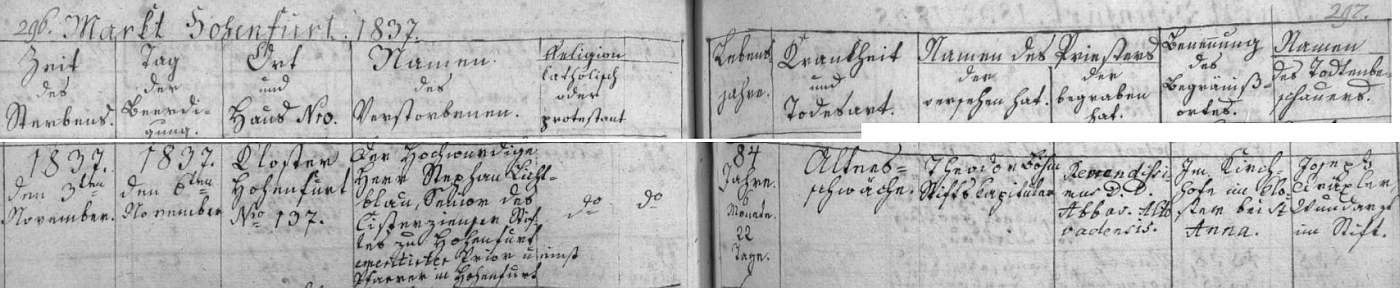 296. Markt Hohenfurt. 1837.
297.
Zeit
des
Sterbens.
Tag
der
Beerdi-
gung.
Ort
und
Haus Nro.
Namen.
des
Verstorbenen.
Religion
katholisch
oder
protestant
Lebens
jahre.
Krankheit
und
Todesart.
Namen des Priesters
der
versehen hat.
der
begraben
hat.
Benennung
des
Begräniß-
ortes.
Namen
des Todtenbe-
schauers.
1837.
den 3ten
November.
1837.
den 6ten
November
Kloster
Hohenfurt
Nro 137.
Der Hochwürdige
Herr Stephan Licht-
blau, Senior des
Cisterzienser Stif-
tes zu Hohenfurt
emeritirter Prior u einst
Pfarrer in Hohenfurt
do
do
84
Jahre.
6
Monate.
22
Tage.
Alters-
schwäche.
Theodor Böhm
Stifts Capitular
D. D.
Abbas. Alto
vadensis.
Im Kirch-
hofe im Klo
ster bei St
Anna.
Joseph
Wundarzt
im Stift.